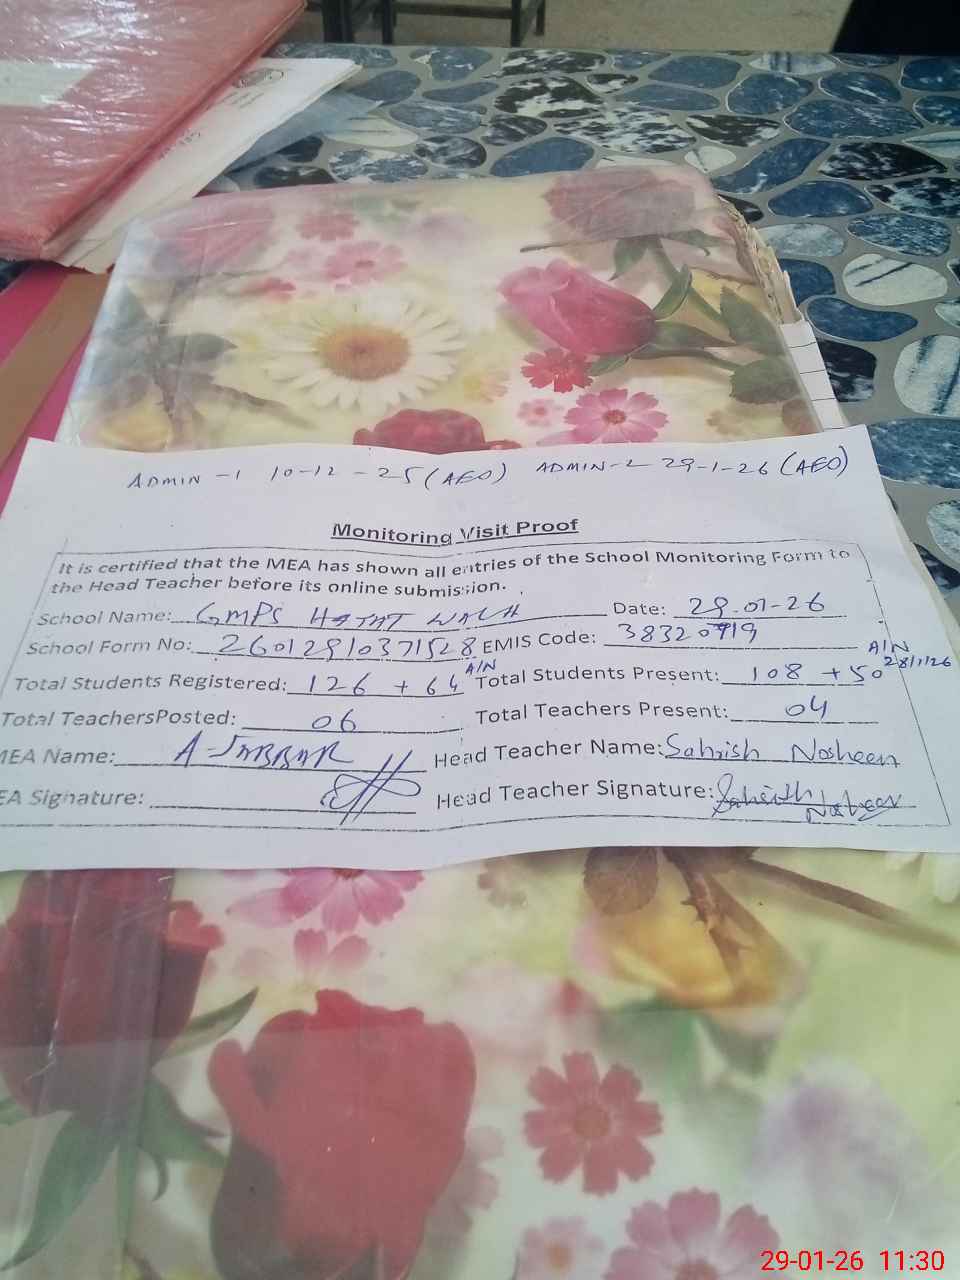 ADMIN-1 10-12-25 (AEO) ADMIN-2 29-1-26 (AEO)
Monitoring Visit Proof
It is certified that the MEA has shown all entries of the School Monitoring Form to
the Head Teacher before its online submission.
School Name: GMPS HAYAT WALA Date: 29-01-26
School Form No: 26012910371528 EMIS Code: 38320719
A/N A/N
Total Students Registered: 126 + 64 Total Students Present: 108 + 50 28/1/26
Total TeachersPosted: 06 Total Teachers Present: 04
MEA Name: A-JABBAR Head Teacher Name: Sahrish Nosheen
EA Signature: Head Teacher Signature: Sahrish
Nosheen
29-01-26 11:30